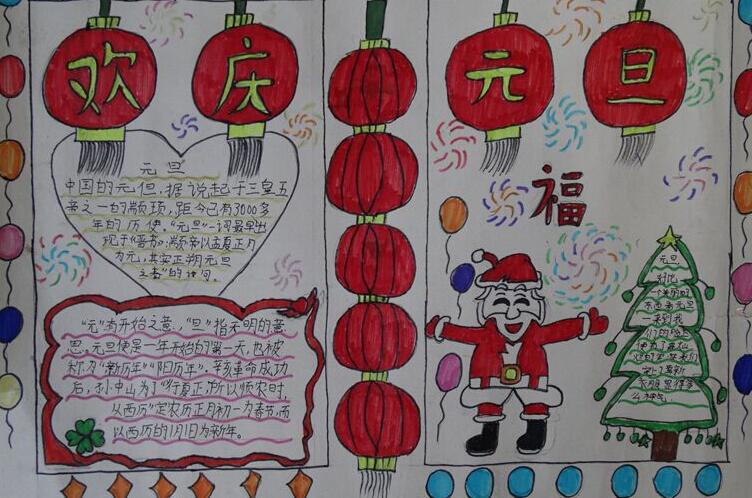 欢庆元旦
元旦
中国的元但,据说起于三皇五
帝之一的颛顼,距今已有3000多
年的历使."元旦"一词最早出
现于《晋书》:颛帝以孟夏正月
为元,其实正朔元旦
之春"的诗句.
"元"有开始之意,"旦"指天明的意
思.元旦便是一年开始的第一天,也被
称为"新历年""阳历年".辛亥革命成功
后,孙中山为了"行夏正,所以顺农时,
从西历"定农历正月初一为春节,而
以西历的1月1日为新年.
福
元旦
一来到我
们的